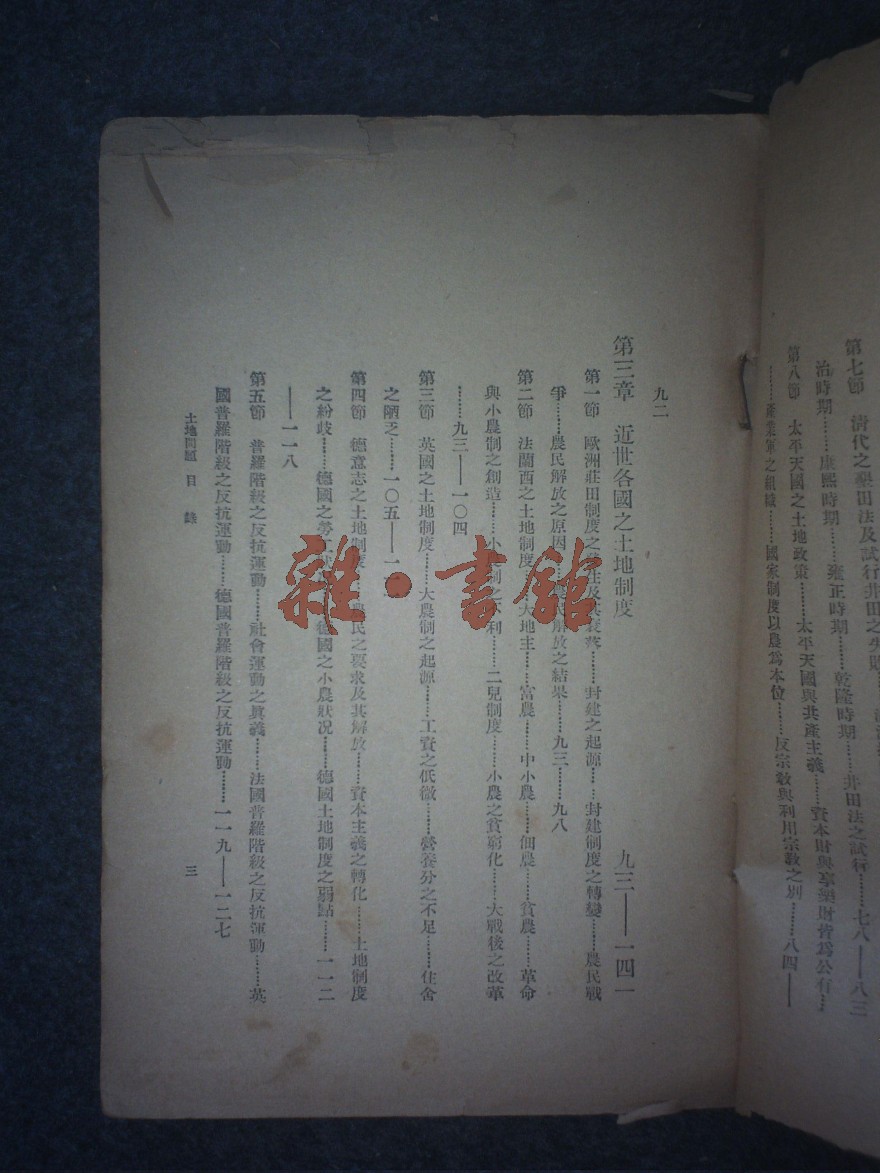 第七節　清代之墾田法及試行井田之失敗
治時期……康熙時期……雍正時期……乾隆時期……井田法之試行……七八——八三
第八節　太平天國之土地政策……太平天國與共產主義……資本財與享樂財皆爲公有……
……產業軍之組織……國家制度以農爲本位……反宗教與利用宗教之別……八四——
九二
第三章　近世各國之土地制度　九三——一四一
第一節　歐洲莊田制度之……封建之起源……封建制度之轉變……農民戰
爭……農民解放之原因……解放之結果……九三……九八
第二節　法蘭西之土地制度……大地主……富農……中小農……佃農……貧農……革命
與小農制之創造……小農制之不利……二兒制度……小農之貧窮化……大戰後之改革
……九三——一〇四
第三節　英國之土地制度……大農制之起源……工資之低微……營養分之不足……住舍
之陋乏……一〇五——一
第四節　德意志之土地制度……農民之要求及其解放……資本主義之轉化……土地制度
之紛歧……德國之勞工狀……德國之小農狀况……德國土地制度之弱點……一一二
——一一八
第五節　普羅階級之反抗運動……社會運動之眞義……法國普羅階級之反抗運動……英
國普羅階級之反抗運動……德國普羅階級之反抗運動……一一九——一二七
土地問題　目錄　三
雜·書館